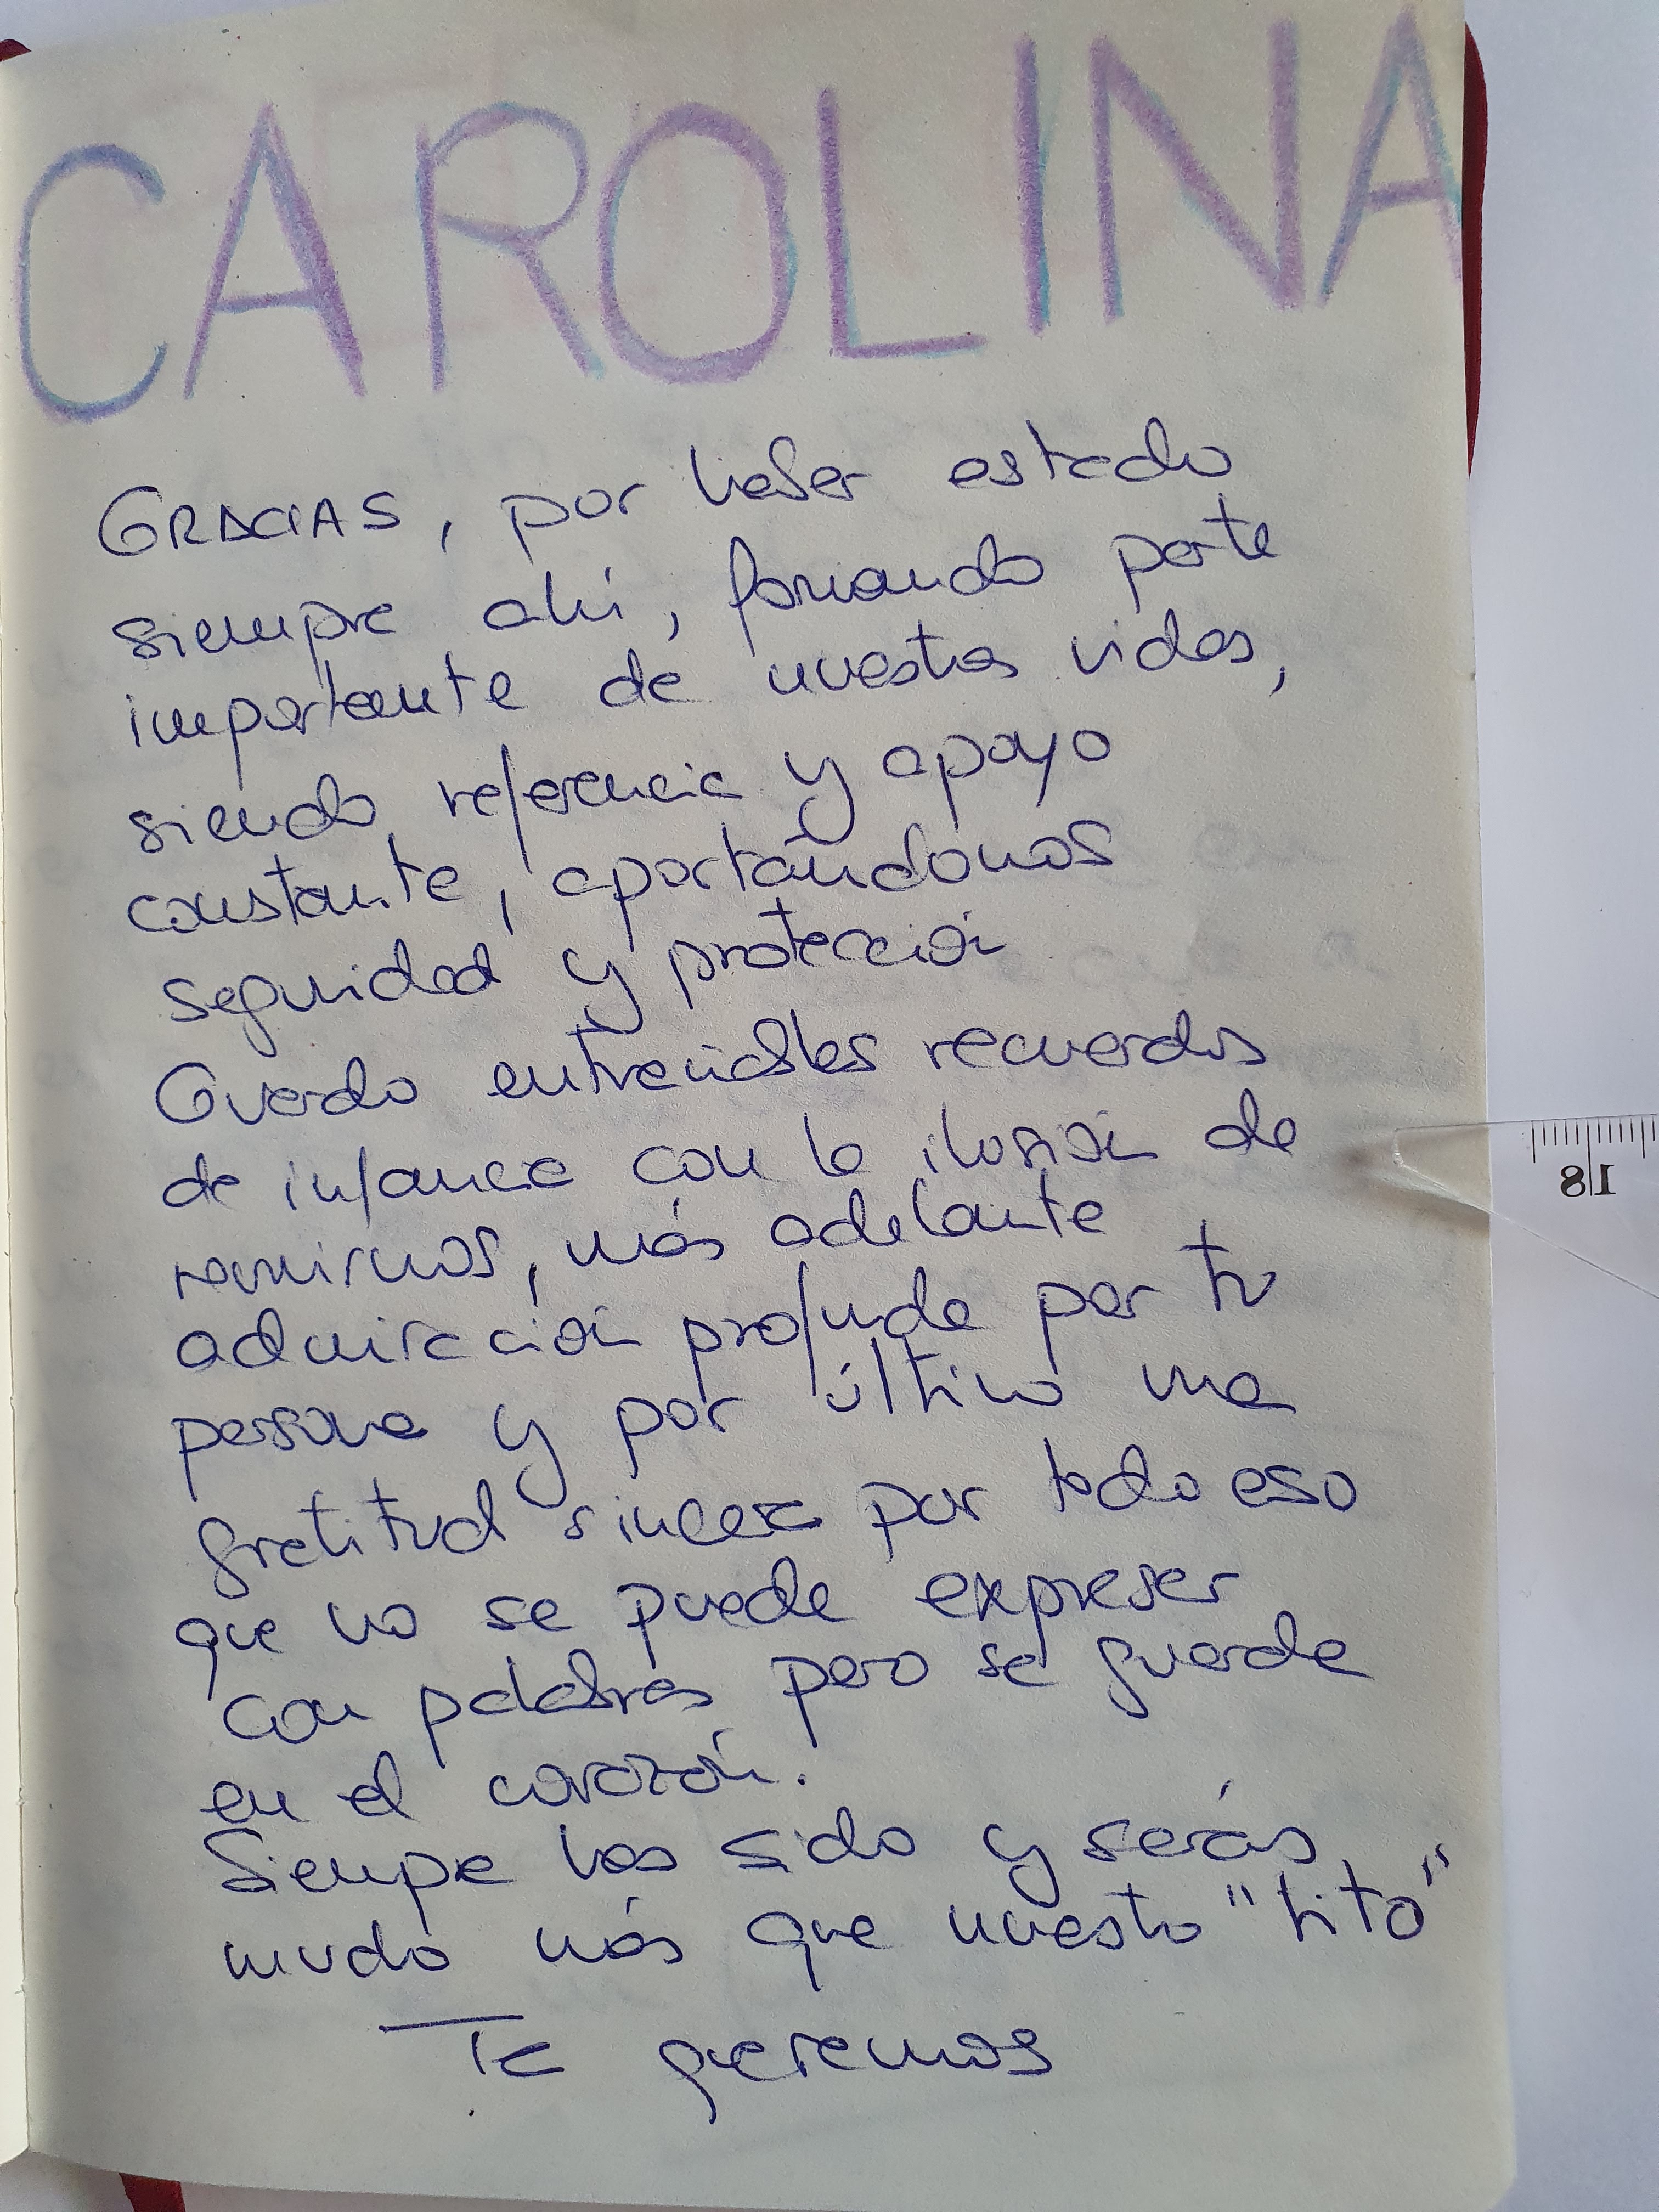 CAROLINA
GRACIAS, por haber estado
siempre ahí, formando parte
importante de nuestras vidas,
siendo referencia y apoyo
constante, aportándonos
seguridad y protección
Guardo entrañables recuerdos
de infancia con la ilusión de
reunirnos, más adelante
admiración profunda por tu
persona y por último una
gratitud sincera por todo eso
que no se puede expresar
con palabras pero se guarda
en el corazón.
Siempre has sido y serás
mucho más que nuestro "tito"
Te queremos
18